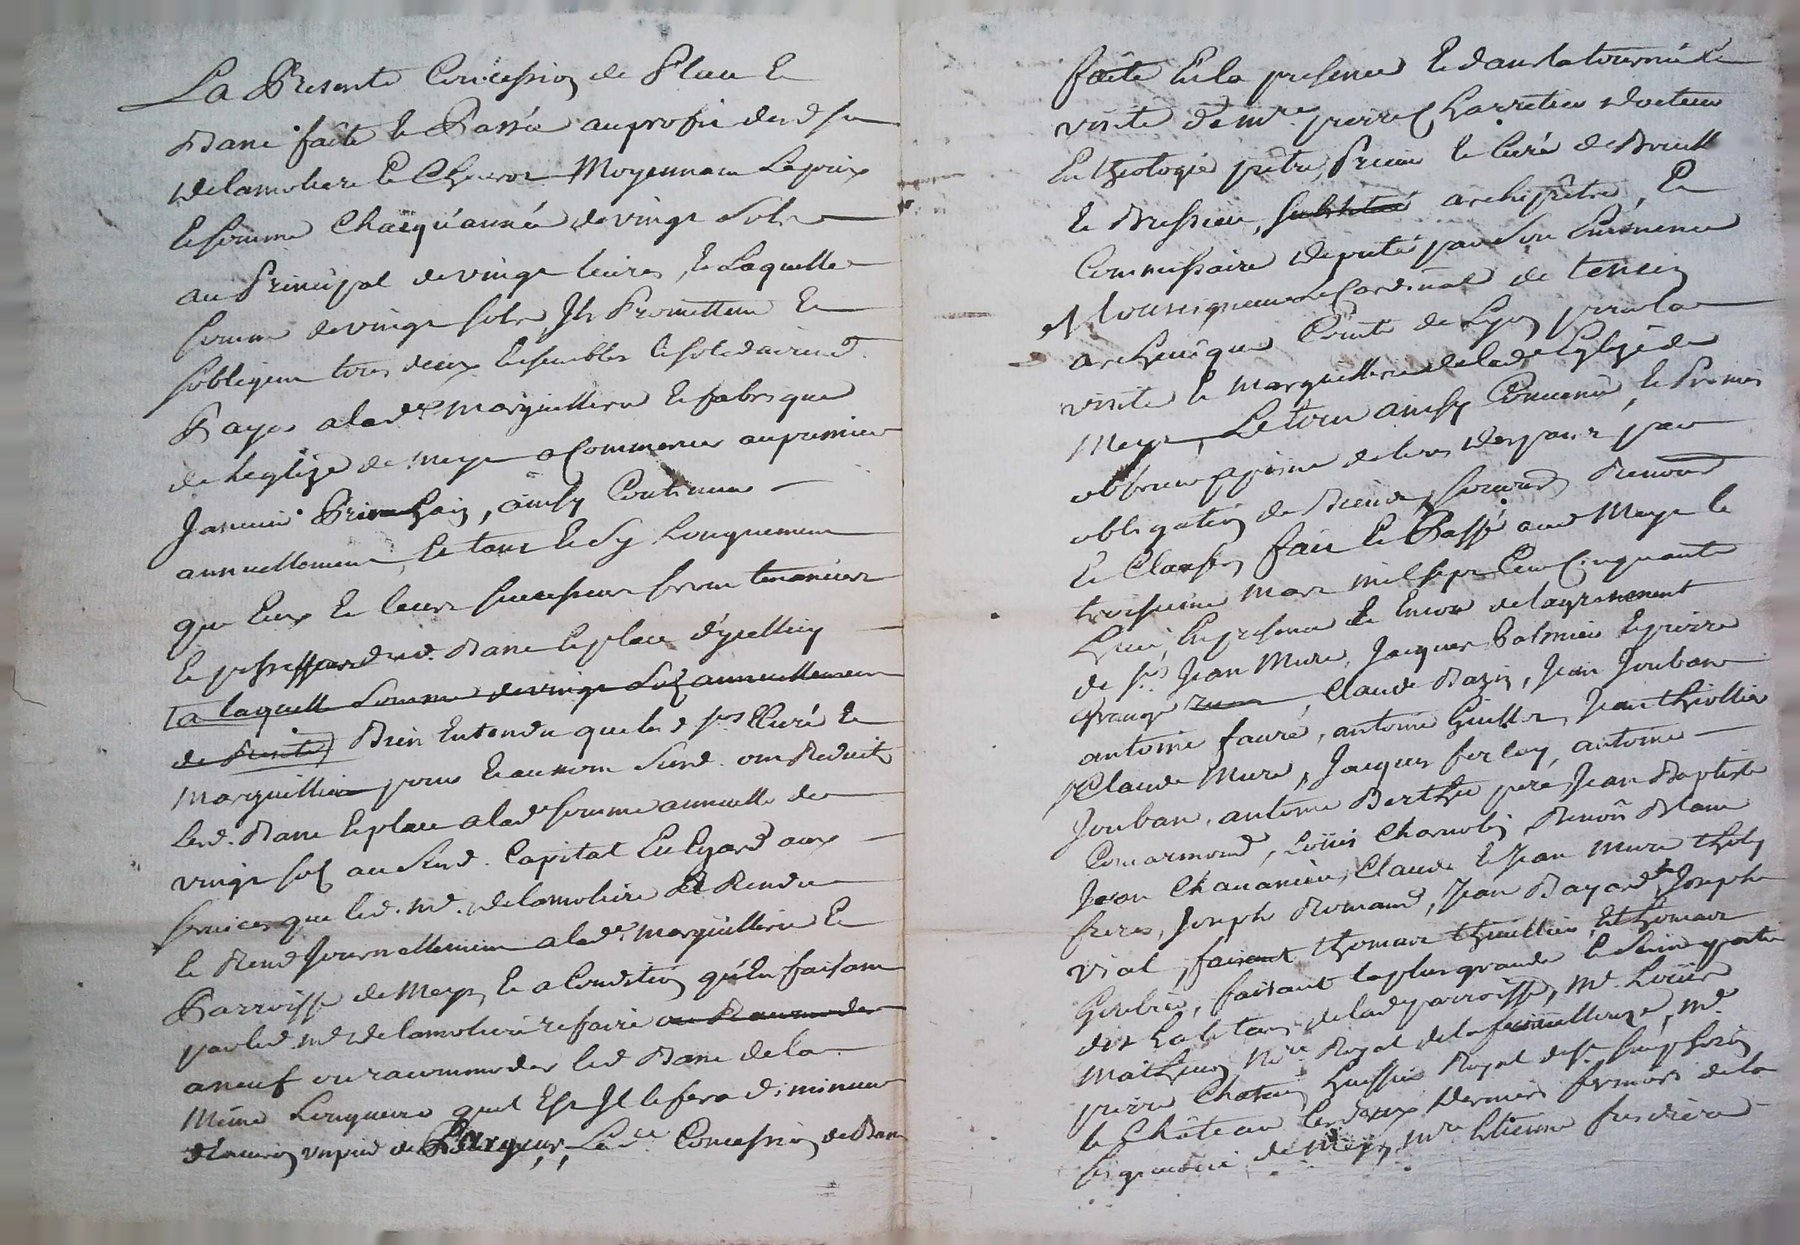 La Presente Concession de place et
Banc faite et Passée au profit desd srs
Delamoliere et Chevron Moyennant le prix
et somme chacqu'année de vingt sols
au Principal de vingt livres, et Laquelle
somme de vingt sols Ils Promettent et
sobligent tous deux ensembles et solidairemt
Payer a lad.e marguilliere et fabrique
de leglize de Meys a Commencer au premier
Janvier Prochain, ainsy Continuer
annuellement, et tant et Sy Longuement
que Eux et leurs successeurs seront tenanciers
et possesseurs dud. Banc et place d'ycelluy
(a laquelle Somme de vingt Sols annuellement
de Rente) Bien Entendu que lesd srs Curé et
Marguillier pour et au nom Susd. ont Reduits
led. Banc et place a lad.e somme annuelle de
vingt sols au susd. Capital En Egard aux
services que led. md. Delamoliere a Rendu
et Rend Journellement a lad.e marguillerie et
Parroisse de Meys et a Condition qu'en faisant
par led. md Delamoliere refaire ou Racomoder
a neuf ou racommoder led Banc de la
Même Longueur quel Est Il le fera diminuer
d'Environ un pied de Largeur, Lad.e Concession de Banc
faite En la presence et dans la tournée de
visite de mre pierre Charretier docteur
En theologie prêtre, Prieur et Curé de Brieu
et Bussieu, substitue archiprêtre, et
Commissaire deputé par Son Eminence
Monseigneur le Cardinal de tencin
archevêque Comte de Lyon pour la
visite et marguillerie de lad.e Eglize de
Meys, Le tout ainsy Convenu, et Promis
observer a peine de tous depans par
obligation de Biens, soumis, Renonce
et Clauses, fait et Passé aud Meys le
troisieme mars mil sept Cent Cinquante
huit, En presence et Encore de l'agrement
de srs Jean Mure, Jacques Palmier et pierre
Grange, Claude Bazin, Jean Jouban
antoine fauré, antoine Guillot, Jean thiollier
Claude Mure, Jacques ferley, antoine
Jouban, antoine Berthet pere Jean Baptiste
Comarmond, Loüis Charnolet, Benoît Blanc
Jean Chavanieu, Claude et Jean Mure tholy
freres, Joseph Romand, Jean Bayard, Joseph
Vial, faisant thomas thuillier, Et thomas
Goubier, faisant la plus grande et Saine partie
des habitans de lad parroisse, Me. Loüis
Mathieu nre Royal de la fouillouze, Me.
pierre Chatain huissier Royal de St simphorien
le Château Les deux derniers fermiers de la
seigneurie de Meys, Mre Etienne